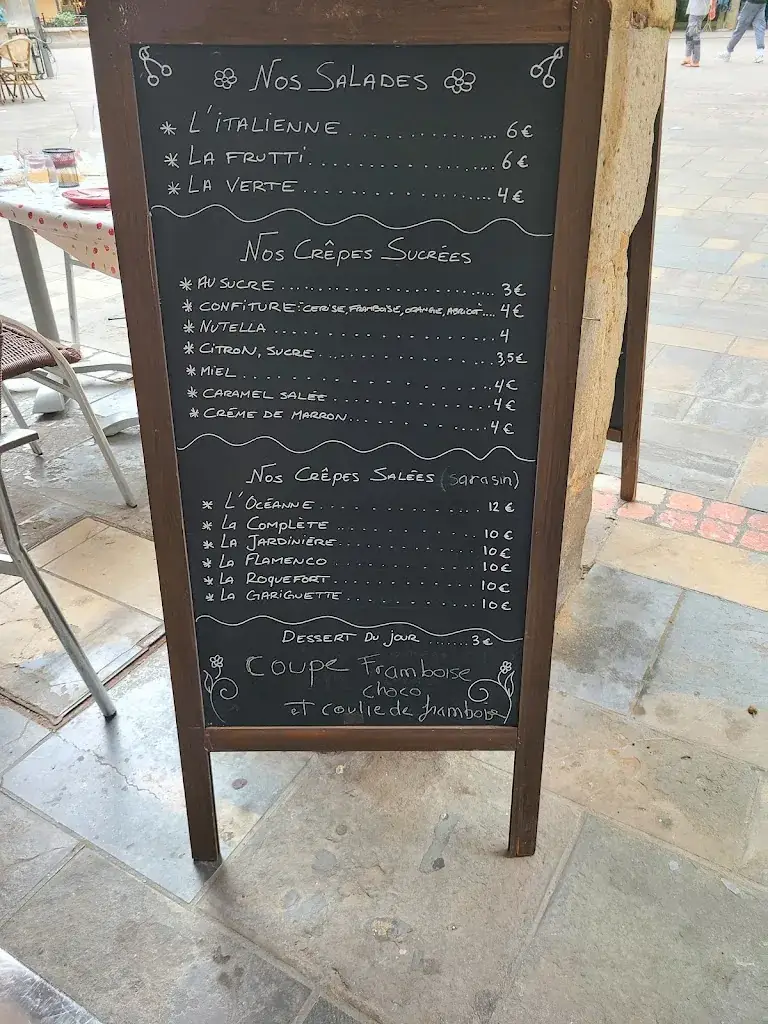 Nos Salades
* L'italienne ................ 6€
* La frutti ................ 6€
* La verte ................ 4€
Nos Crêpes Sucrées
* Au sucre ................ 3€
* Confiture: cerise, framboise, orange, abricot... 4€
* Nutella ................ 4
* Citron, sucre ................ 3,5€
* Miel ................ 4€
* Caramel salée ................ 4€
* Créme de marron ................ 4€
Nos Crêpes Salées (sarasin)
* L'Océanne ................ 12€
* La Complète ................ 10€
* La Jardinière ................ 10€
* La Flamenco ................ 10€
* La Roquefort ................ 10€
* La Gariguette ................ 10€
Dessert du jour ....... 3€
Coupe Framboise
choco
et coulie de framboise